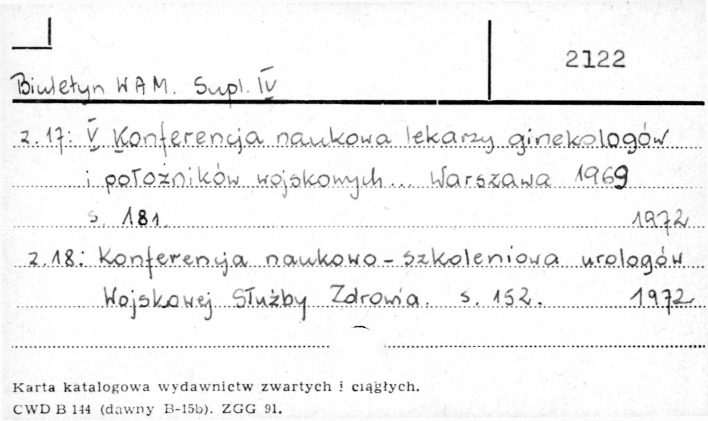 2122
Biuletyn WAM. Supl. IV
z. 17: V Konferencja naukowa lekarzy ginekologów
i położników wojskowych... Warszawa 1969
s. 181. 1972
z. 18: Konferencja naukowo-szkoleniowa urologów
Wojskowej Służby Zdrowia. s. 152. 1972
Karta katalogowa wydawnictw zwartych i ciągłych.
CWD B 144 (dawny B-15b). ZGG 91.